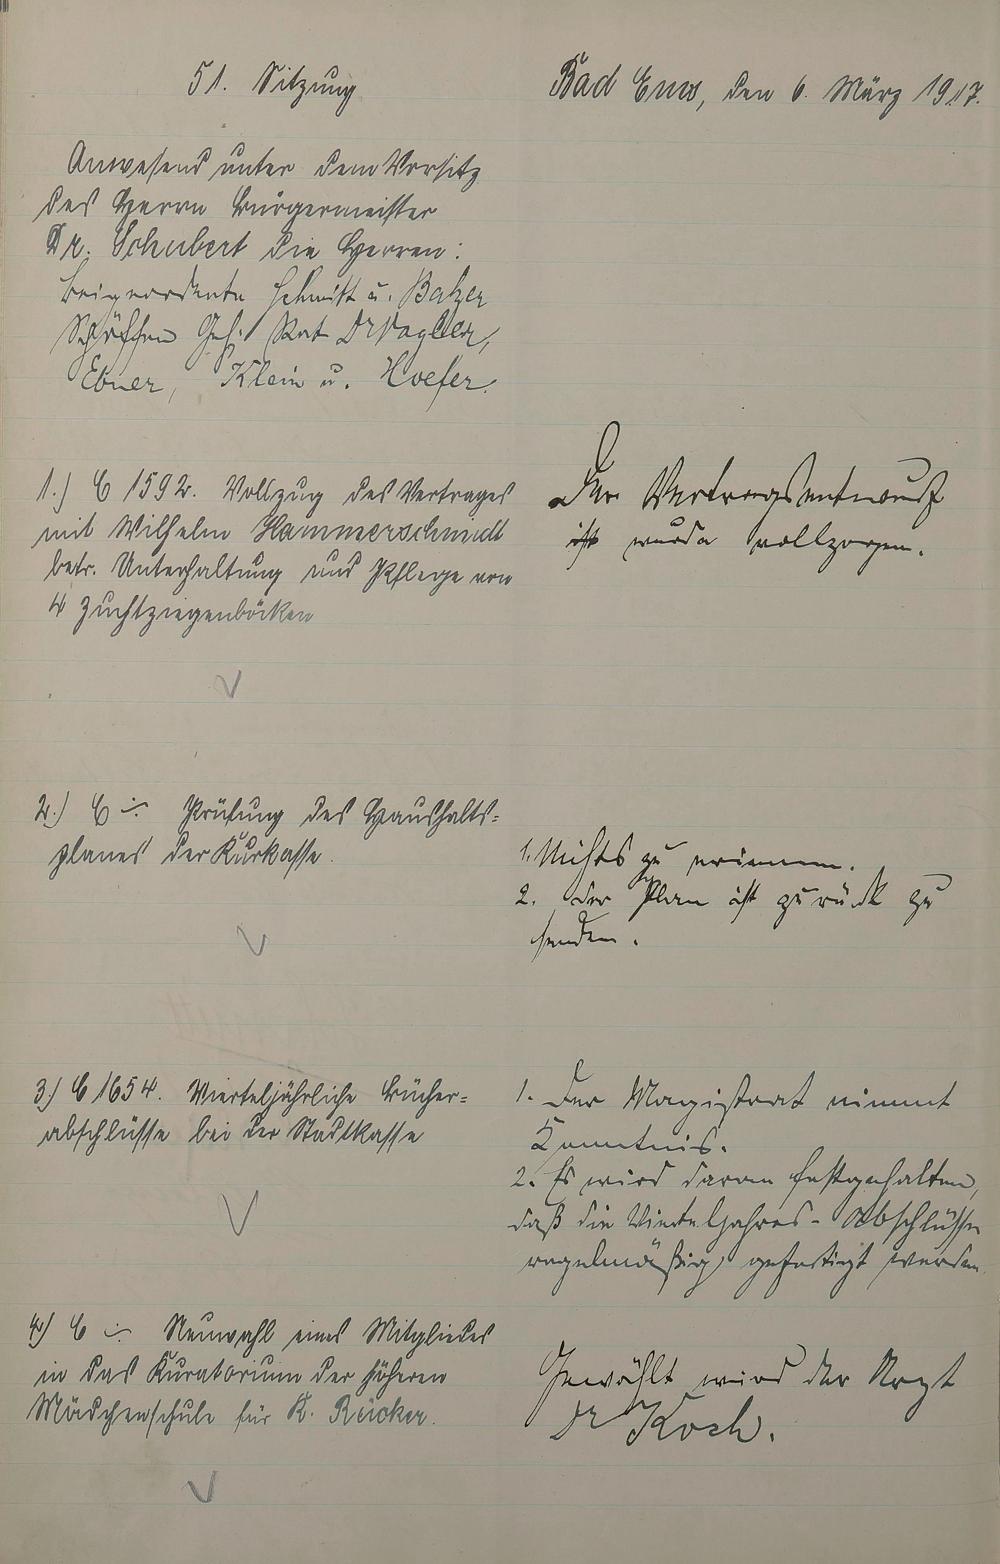 51. Sitzung
Bad Ems, den 6. März 1917.
Anwesend unter dem Vorsitz
des Herrn Bürgermeister
Dr. Schubert die Herren:
Beigeordnete Schmitt u. Balzer
Schöffen Geh. Rat Dr Vogler,
Ebner, Klein u. Hoefer.
1.) C 1592. Vollzug des Vertrages
mit Wilhelm Hammerschmidt
betr. Unterhaltung und Pflege von
4 Zuchtziegenböcken
Der Vertragsentwurf
ist wurde vollzogen.
2.) C ÷ Prüfung des Haushalts=
planes der Kurkasse.
1. Nichts zu erinnern.
2. Der Plan ist zurück zu
senden.
3.) C 1654. Vierteljährliche Bücher=
abschlüsse bei der Stadtkasse
1. Der Magistrat nimmt
Kenntnis.
2. Es wird daran festgehalten,
daß die Vierteljahres-Abschlüsse
regelmäßig gefertigt werden.
4.) C ÷ Neuwahl eines Mitgliedes
in das Kuratorium der höheren
Mädchenschule für K. Rücker.
Gewählt wird der Arzt
Dr Koch.